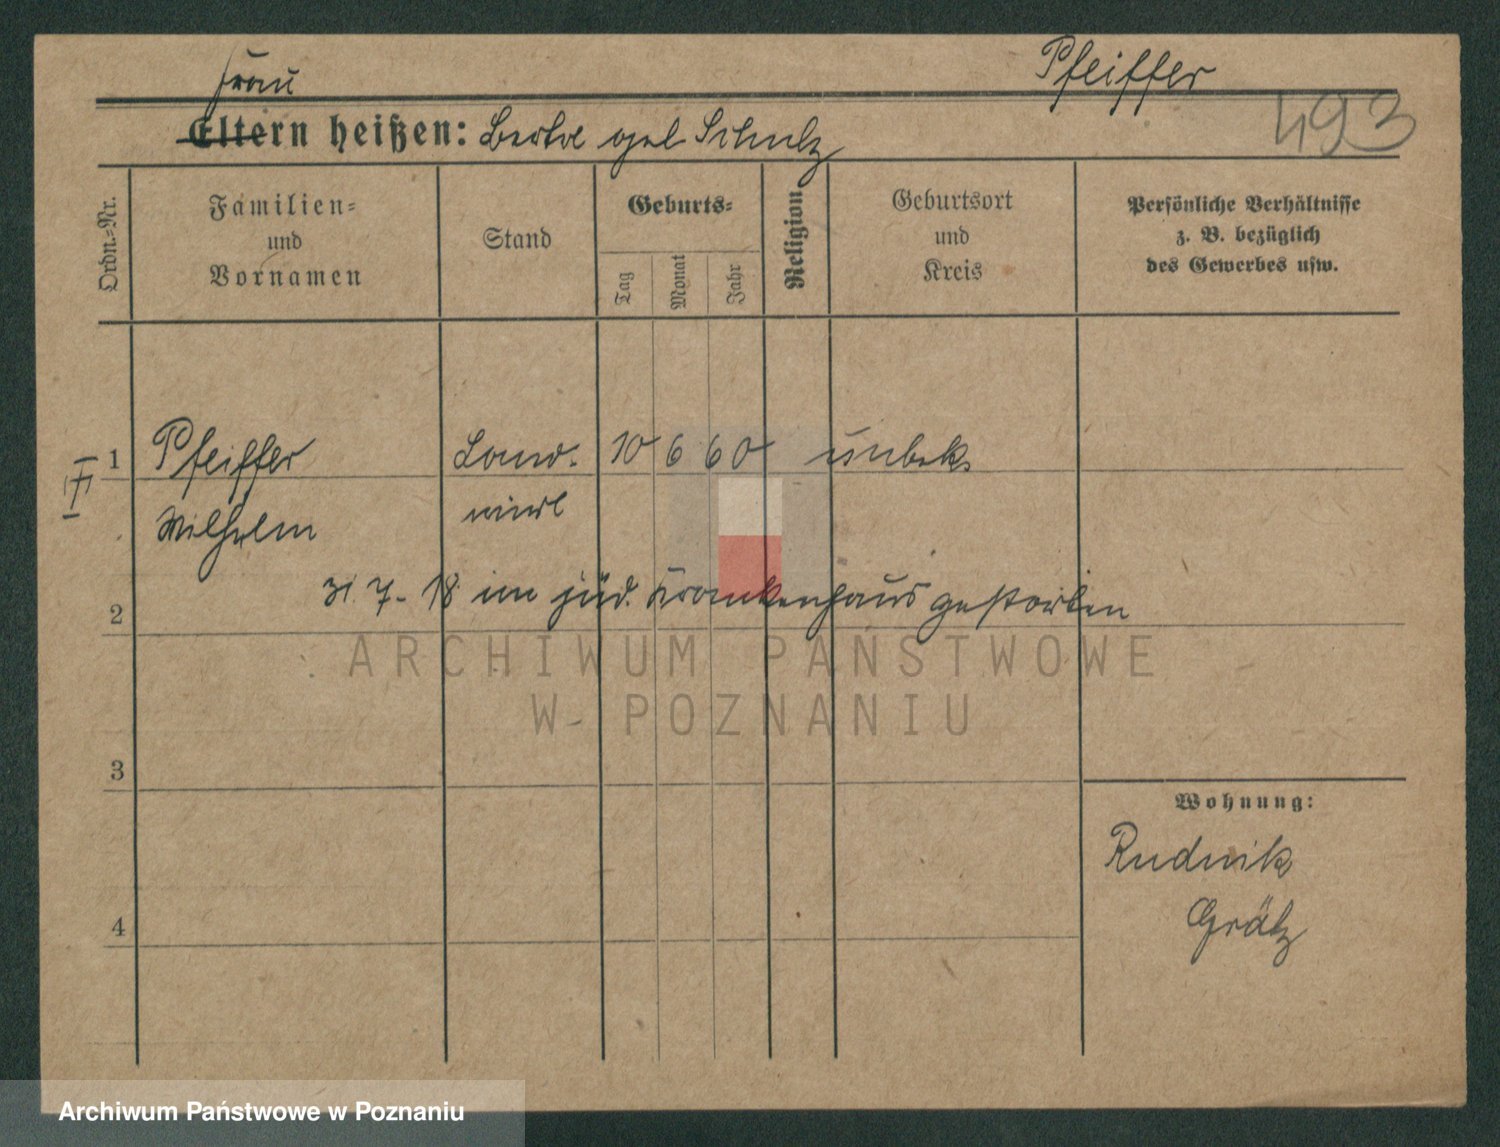 Frau
Pfeiffer
Eltern heißen: Berta geb Schulz
493
Ordn.-Nr.
Familien- und Vornamen
Stand
Geburts-
Tag
Monat
Jahr
Religion
Geburtsort und Kreis
Persönliche Verhältnisse
z. B. bezüglich
des Gewerbes usw.
1 Pfeiffer Land- 10 6 60 unbek.
Wilhelm wirt
31. 7. 18 im jüd. Krankenhaus gestorben
2
ARCHIWUM PAŃSTWOWE
W POZNANIU
3
Wohnung:
Rudnik
Grätz
4
Archiwum Państwowe w Poznaniu